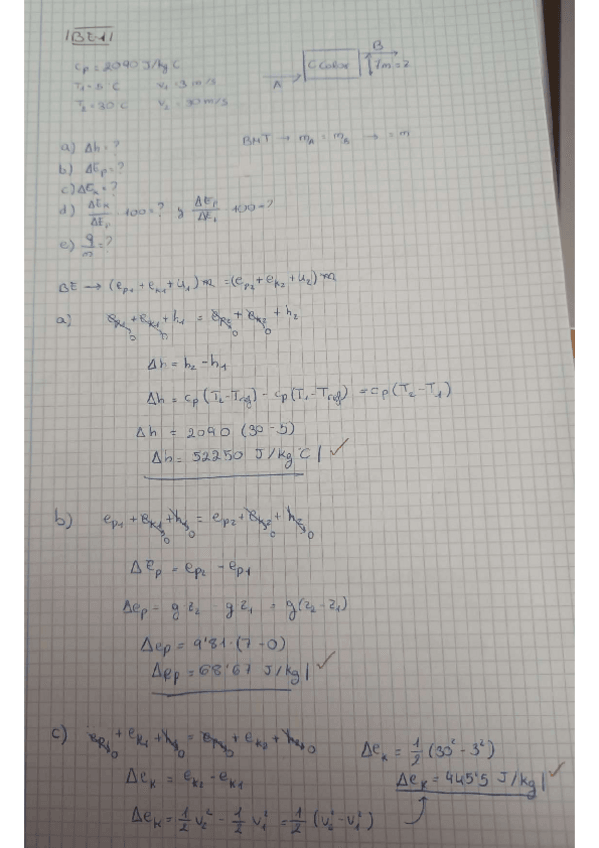 |BE1|
Cp = 2090 J/kg C
T₁ = 5 °C V₁ = 3 m/s
T₂ = 30 C V₂ = 30 m/s
A C Calor B 7m = z
a) Δh = ?
BMT → mA = mB → = m
b) ΔEp = ?
c) ΔEk = ?
d) ΔEk/ΔEp · 100 = ? y ΔEp/ΔE 100 = ?
e) q/m = ?
BE → (ep₁ + ek₁ + u₁) m = (ep₂ + ek₂ + u₂) m
a) ep₁ 0 + ek₁ 0 + h₁ = ep₂ 0 + ek₂ 0 + h₂
Δh = h₂ - h₁
Δh = cp (T₂ - Tref) - cp (T₁ - Tref) = cp (T₂ - T₁)
Δh = 2090 (30 - 5)
Δh = 52250 J/kg C | ✓
b) ep₁ + ek₁ 0 + h₁ 0 = ep₂ + ek₂ 0 + h₂ 0
ΔEp = ep₂ - ep₁
Δep = g z₂ - g z₁ = g (z₂ - z₁)
Δep = 9'81 · (7 - 0)
Δep = 68'67 J/kg | ✓
c) ep₁ 0 + ek₁ + h₁ 0 = ep₂ 0 + ek₂ + h₂ 0
Δek = ek₂ - ek₁
Δek = 1/2 v₂² - 1/2 v₁² = 1/2 (v₂² - v₁²)
Δek = 1/2 (30² - 3²)
Δek = 445'5 J/kg | ✓